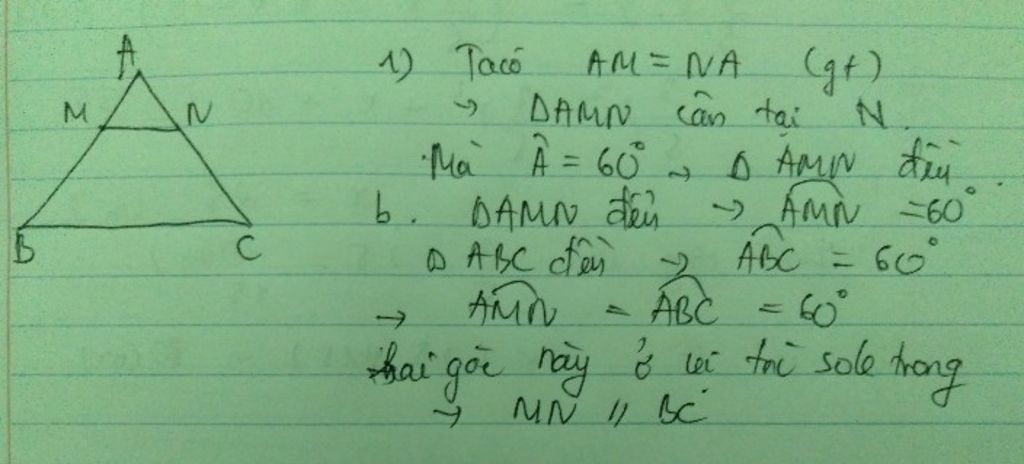 A
M N
B C
1) Ta có AM = NA (gt)
→ ΔAMN cân tại N.
Mà Â = 60° → Δ AMN đều.
b. ΔAMN đều → \widehat{AMN} = 60°
Δ ABC đều → \widehat{ABC} = 60°
→ \widehat{AMN} = \widehat{ABC} = 60°
hai góc này ở vị trí sole trong
→ MN // BC